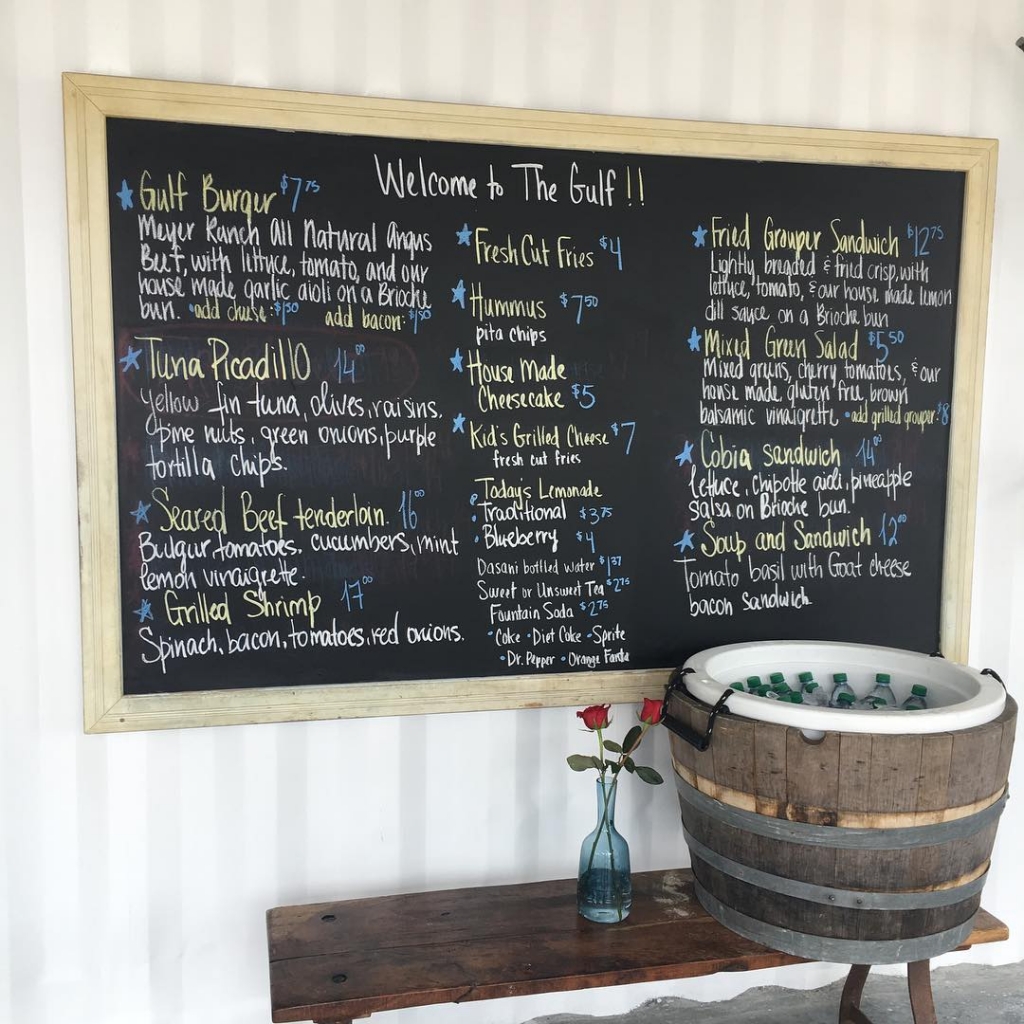 Welcome to The Gulf !!
Gulf Burger $7 75
Meyer Ranch All Natural Angus
Beef, with littuce, tomato, and our
house made garlic aioli on a Brioche
bun. •add cheese: $1 50 add bacon: $1 50
Tuna Picadillo 14 00
yellow fin tuna, olives, raisins,
pine nuts, green onions, purple
tortilla chips.
Seared Beef tenderloin. 16 00
Bulgur tomatoes, cucumbers, mint
lemon vinaigrette.
Grilled Shrimp 17 00
Spinach, bacon, tomatoes, red onions.
Fresh Cut Fries $4
Hummus $7 50
pita chips
House Made
Cheesecake $5
Kid's Grilled Cheese $7
fresh cut fries
Today's Lemonade
• Traditional $3 75
• Blueberry $4
Dasani bottled water $1 37
Sweet or Unsweet Tea $2 75
Fountain Soda $2 75
•Coke •Diet Coke •Sprite
•Dr. Pepper •Orange Fanta
Fried Grouper Sandwich $12 75
Lightly breaded & fried crisp, with
lettuce, tomato, & our house made lemon
dill sauce on a Brioche bun
Mixed Green Salad $5 50
Mixed greens, cherry tomatoes, & our
house made gluten free, brown
balsamic vinaigrette •add grilled grouper: $8
Cobia sandwich 14 00
lettuce, chipotle aioli, pineapple
salsa on Brioche bun.
Soup and Sandwich 12 00
Tomato basil with Goat cheese
bacon sandwich